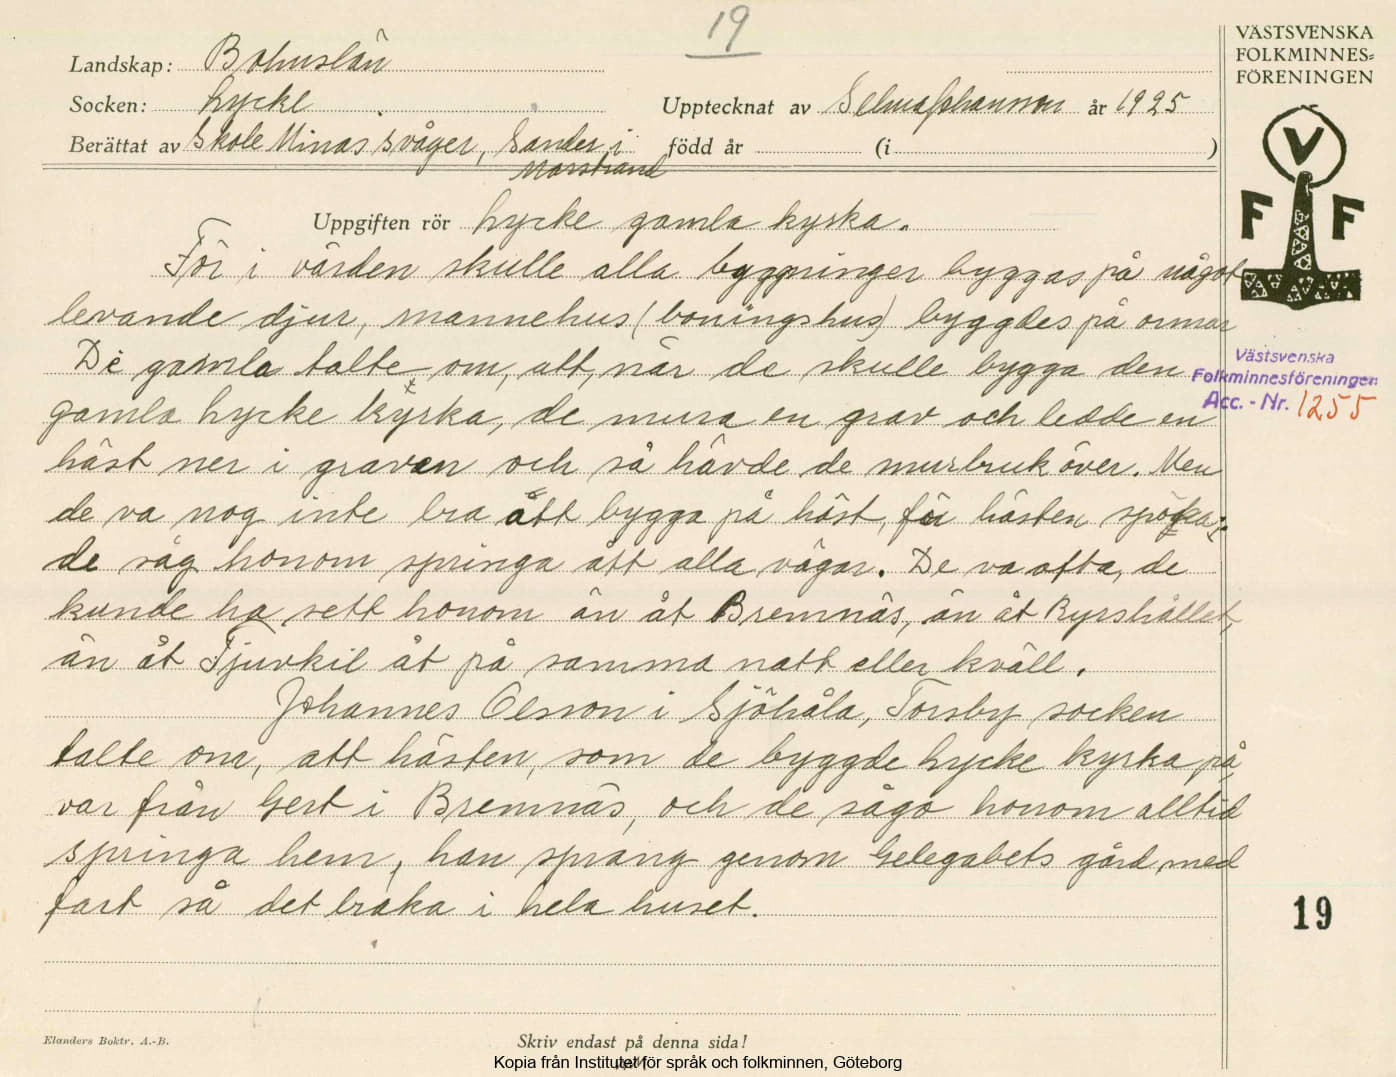 19
VÄSTSVENSKA
FOLKMINNES=
FÖRENINGEN
Landskap: Bohuslän
Socken: Lycke
Upptecknat av Selma Johansson år 1925
Berättat av Skole Minas svåger, Sander i Marstrand
född år (i )
V
F F
Uppgiften rör Lycke gamla kyrka.
För i värden skulle alla byggninger byggas på något
levande djur, mannehus (boningshus) byggdes på ormar
De gamla talte om, att, när de skulle bygga den
gamla Lycke kyrka, de mura en grav och ledde en
häst ner i graven och så hävde de murbruk över. Men
de va nog inte bra att bygga på häst, för hästen spöka;
de såg honom springa åt alla vägar. De va ofta, de
kunde ha sett honom än åt Bremnäs, än åt Ryrshållet,
än åt Tjuvkil åt på samma natt eller kväll.
Johannes Olsson i Sjöhåla, Torsby socken
talte om, att hästen, som de byggde Lycke kyrka på
var från Gert i Bremnäs, och de sågo honom alltid
springa hem, han sprang genom Gelegabets gård med
fart så det braka i hela huset.
Västsvenska
Folkminnesföreningen
Acc. - Nr. 1255
19
Elanders Boktr. A.-B.
Skriv endast på denna sida!
Kopia från Institutet för språk och folkminnen, Göteborg